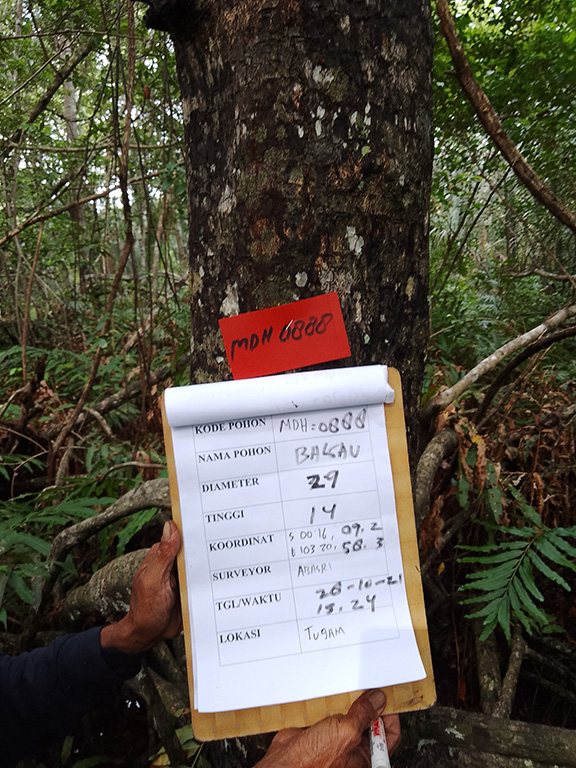 MDH 0888
KODE POHON MDH=0888
NAMA POHON BAKAU
DIAMETER 29
TINGGI 14
KOORDINAT S 00 16, 09.2
E 103 20, 58.3
SURVEYOR ABASRI
TGL/WAKTU 26-10-21
15.24
LOKASI TUGAM